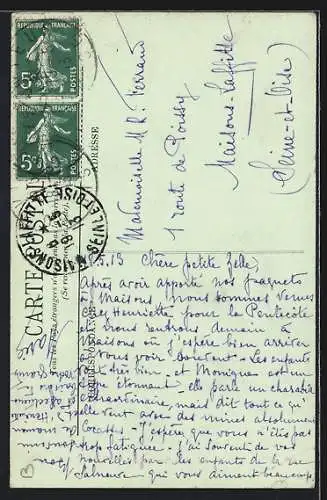 RÉPUBLIQUE FRANÇAISE
5c POSTES
RÉPUBLIQUE FRANÇAISE
5c POSTES
MAISONS-LAFFITTE
CARTE POSTALE
CORRESPONDANCE
ADRESSE
Mademoiselle M. R. Ferrand
1 route de Poissy
Maisons-Laffitte
(Seine-et-Oise)
5.13 Chère petite
Après avoir apporté nos paquets
à Maisons, nous sommes venus
chez Henriette pour la Pentecôte
et nous rentrons demain à
Maisons où j'espère bien arriver
vous voir souvent. Les enfants
vont très bien, et Monique est un
étonnant, elle parle un charabia
extraordinaire, mais dit tout ce qu'
elle veut avec des mines absolument
cocasses. J'espère que vous n'êtes pas
trop fatiguée. J'ai souvent de vos
nouvelles par les enfants de la rue
qui vous aiment beaucoup